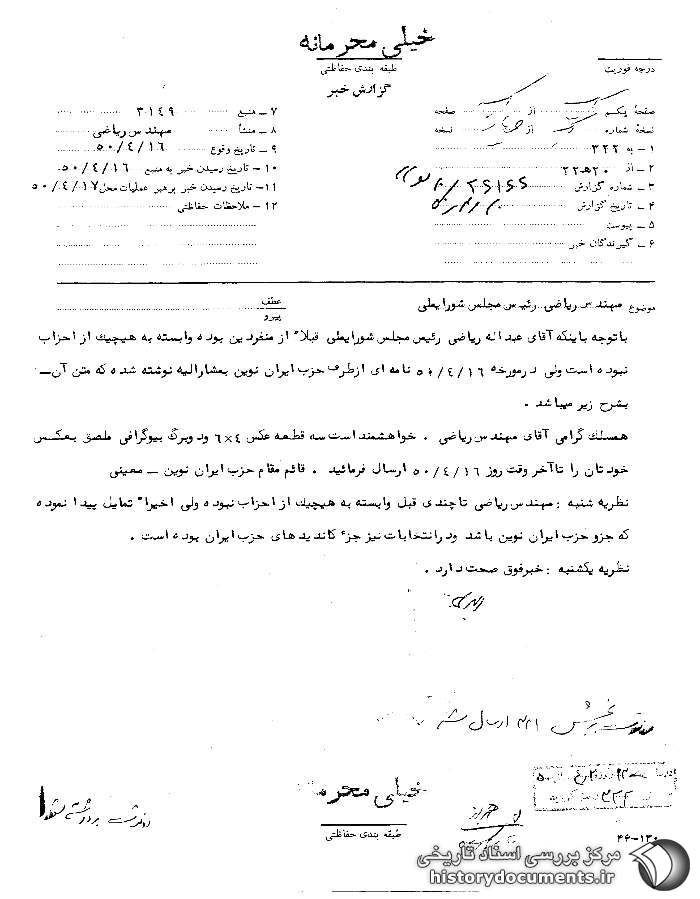 خیلی محرمانه
طبقه بندی حفاظتی
درجه فوریت
گزارش خبر
صفحهٔ یکم از صفحه
نسخهٔ شماره از نسخه
۱ ـ به ۳۲۲
۲ ـ از ۲۰ه‍۲۲
۳ ـ شماره گزارش
۴ ـ تاریخ گزارش
۵ ـ پیوست
۶ ـ گیرندگان خبر
۷ ـ منبع ۳۱۴۹
۸ ـ منشأ مهندس ریاضی
۹ ـ تاریخ وقوع ۵۰/۴/۱۶
۱۰ ـ تاریخ رسیدن خبر به منبع ۵۰/۴/۱۶
۱۱ ـ تاریخ رسیدن خبر برهبر عملیات محل ۵۰/۴/۱۷
۱۲ ـ ملاحظات حفاظتی
موضوع مهندس ریاضی رئیس مجلس شورایملی
عطف
پیرو
باتوجه باینکه آقای عبداله ریاضی رئیس مجلس شورایملی قبلا" از منفردین بوده وابسته به هیچیک از احزاب
نبوده است ولی درمورخه ۵۰/۴/۱۶ نامه ای ازطرف حزب ایران نوین بمشارالیه نوشته شده که متن آن ـ
بشرح زیر میباشد .
همسلك گرامی آقای مهندس ریاضی . خواهشمند است سه قطعه عکس ۴×۶ ودوبرگ بیوگرافی ملصق بعکس
خودتان را تا آخر وقت روز ۵۰/۴/۱۶ ارسال فرمائید . قائم مقام حزب ایران نوین ـ معینی
نظریه شنبه : مهندس ریاضی تاچندی قبل وابسته به هیچیک از احزاب نبوده ولی اخیرا" تمایل پیدا نموده
که جزو حزب ایران نوین باشد ودرانتخابات نیز جزء کاندیدهای حزب ایران بوده است .
نظریه یکشنبه : خبرفوق صحت دارد .
ارسال شد
خیلی محرمانه
طبقه بندی حفاظتی
۴۶-۱۳۰
مرکز بررسی اسناد تاریخی
historydocuments.ir